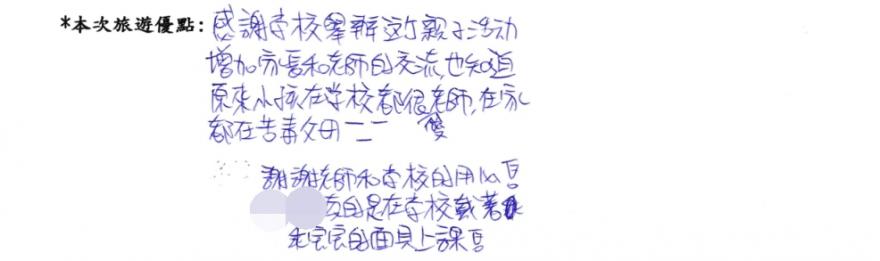 *本次旅遊優點: 感謝学校舉辦这个親子活动
增加家長和老師的交流,也知道
原來小孩在学校都很老師,在家
都在苦毒父母二二 愛
謝謝老師和学校的用心
真的是在学校戴著
和宏宏的面具上課